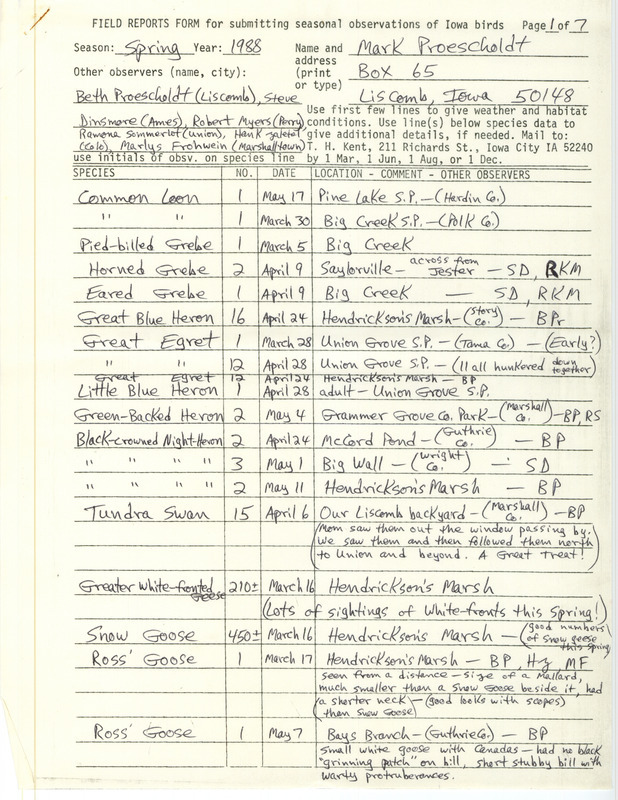 FIELD REPORTS FORM for submitting seasonal observations of Iowa birds Page 1 of 7
Season: Spring Year: 1988 Name and Mark Proescholdt
address
Other observers (name, city): (print Box 65
or type)
Beth Proescholdt (Liscomb), Steve Liscomb, Iowa 50148
Dinsmore (Ames), Robert Myers (Perry) Use first few lines to give weather and habitat
conditions. Use line(s) below species data to
Ramona Sommerlot (Union), Hank Zaletel give additional details, if needed. Mail to:
(Colo), Marlys Frohwein (Marshalltown) T. H. Kent, 211 Richards St., Iowa City IA 52240
use initials of obsv. on species line by 1 Mar, 1 Jun, 1 Aug, or 1 Dec.
SPECIES NO. DATE LOCATION - COMMENT - OTHER OBSERVERS
Common Loon 1 May 17 Pine Lake S.P. - (Hardin Co.)
" " 1 March 30 Big Creek S.P. - (Polk Co.)
Pied-billed Grebe 1 March 5 Big Creek
Horned Grebe 2 April 9 Saylorville - across from Jester - SD, RKM
Eared Grebe 1 April 9 Big Creek - SD, RKM
Great Blue Heron 16 April 24 Hendrickson's Marsh - (Story Co.) - BPr
Great Egret 1 March 28 Union Grove S.P. - (Tama Co.) - (Early?)
" " 12 April 28 Union Grove S.P. - (11 all hunkered down together)
Great Egret 12 April 24 Hendrickson's Marsh - BP
Little Blue Heron 1 April 28 adult - Union Grove S.P.
Green-Backed Heron 2 May 4 Grammer Grove Co. Park - (Marshall Co.) - BP, RS
Black-crowned Night-Heron 2 April 24 McCord Pond - (Guthrie Co.) - BP
" " " " 3 May 1 Big Wall - (Wright Co.) - SD
" " " " 2 May 11 Hendrickson's Marsh - BP
Tundra Swan 15 April 6 Our Liscomb backyard - (Marshall Co.) - BP
(Mom saw them out the window passing by.
We saw them and then followed them north
to Union and beyond. A Great treat!)
Greater White-fronted Geese 210± March 16 Hendrickson's Marsh
(Lots of sightings of White-fronts this Spring!)
Snow Goose 450± March 16 Hendrickson's Marsh - (good numbers of Snow geese this Spring)
Ross' Goose 1 March 17 Hendrickson's Marsh - BP, HZ, MF
seen from a distance - size of a Mallard,
much smaller than a Snow Goose beside it, had
a shorter neck - (good looks with scopes)
than Snow Goose)
Ross' Goose 1 May 7 Bays Branch - (Guthrie Co.) - BP
small white goose with Canadas - had no black
"grinning patch" on bill, short stubby bill with
warty protruberances.